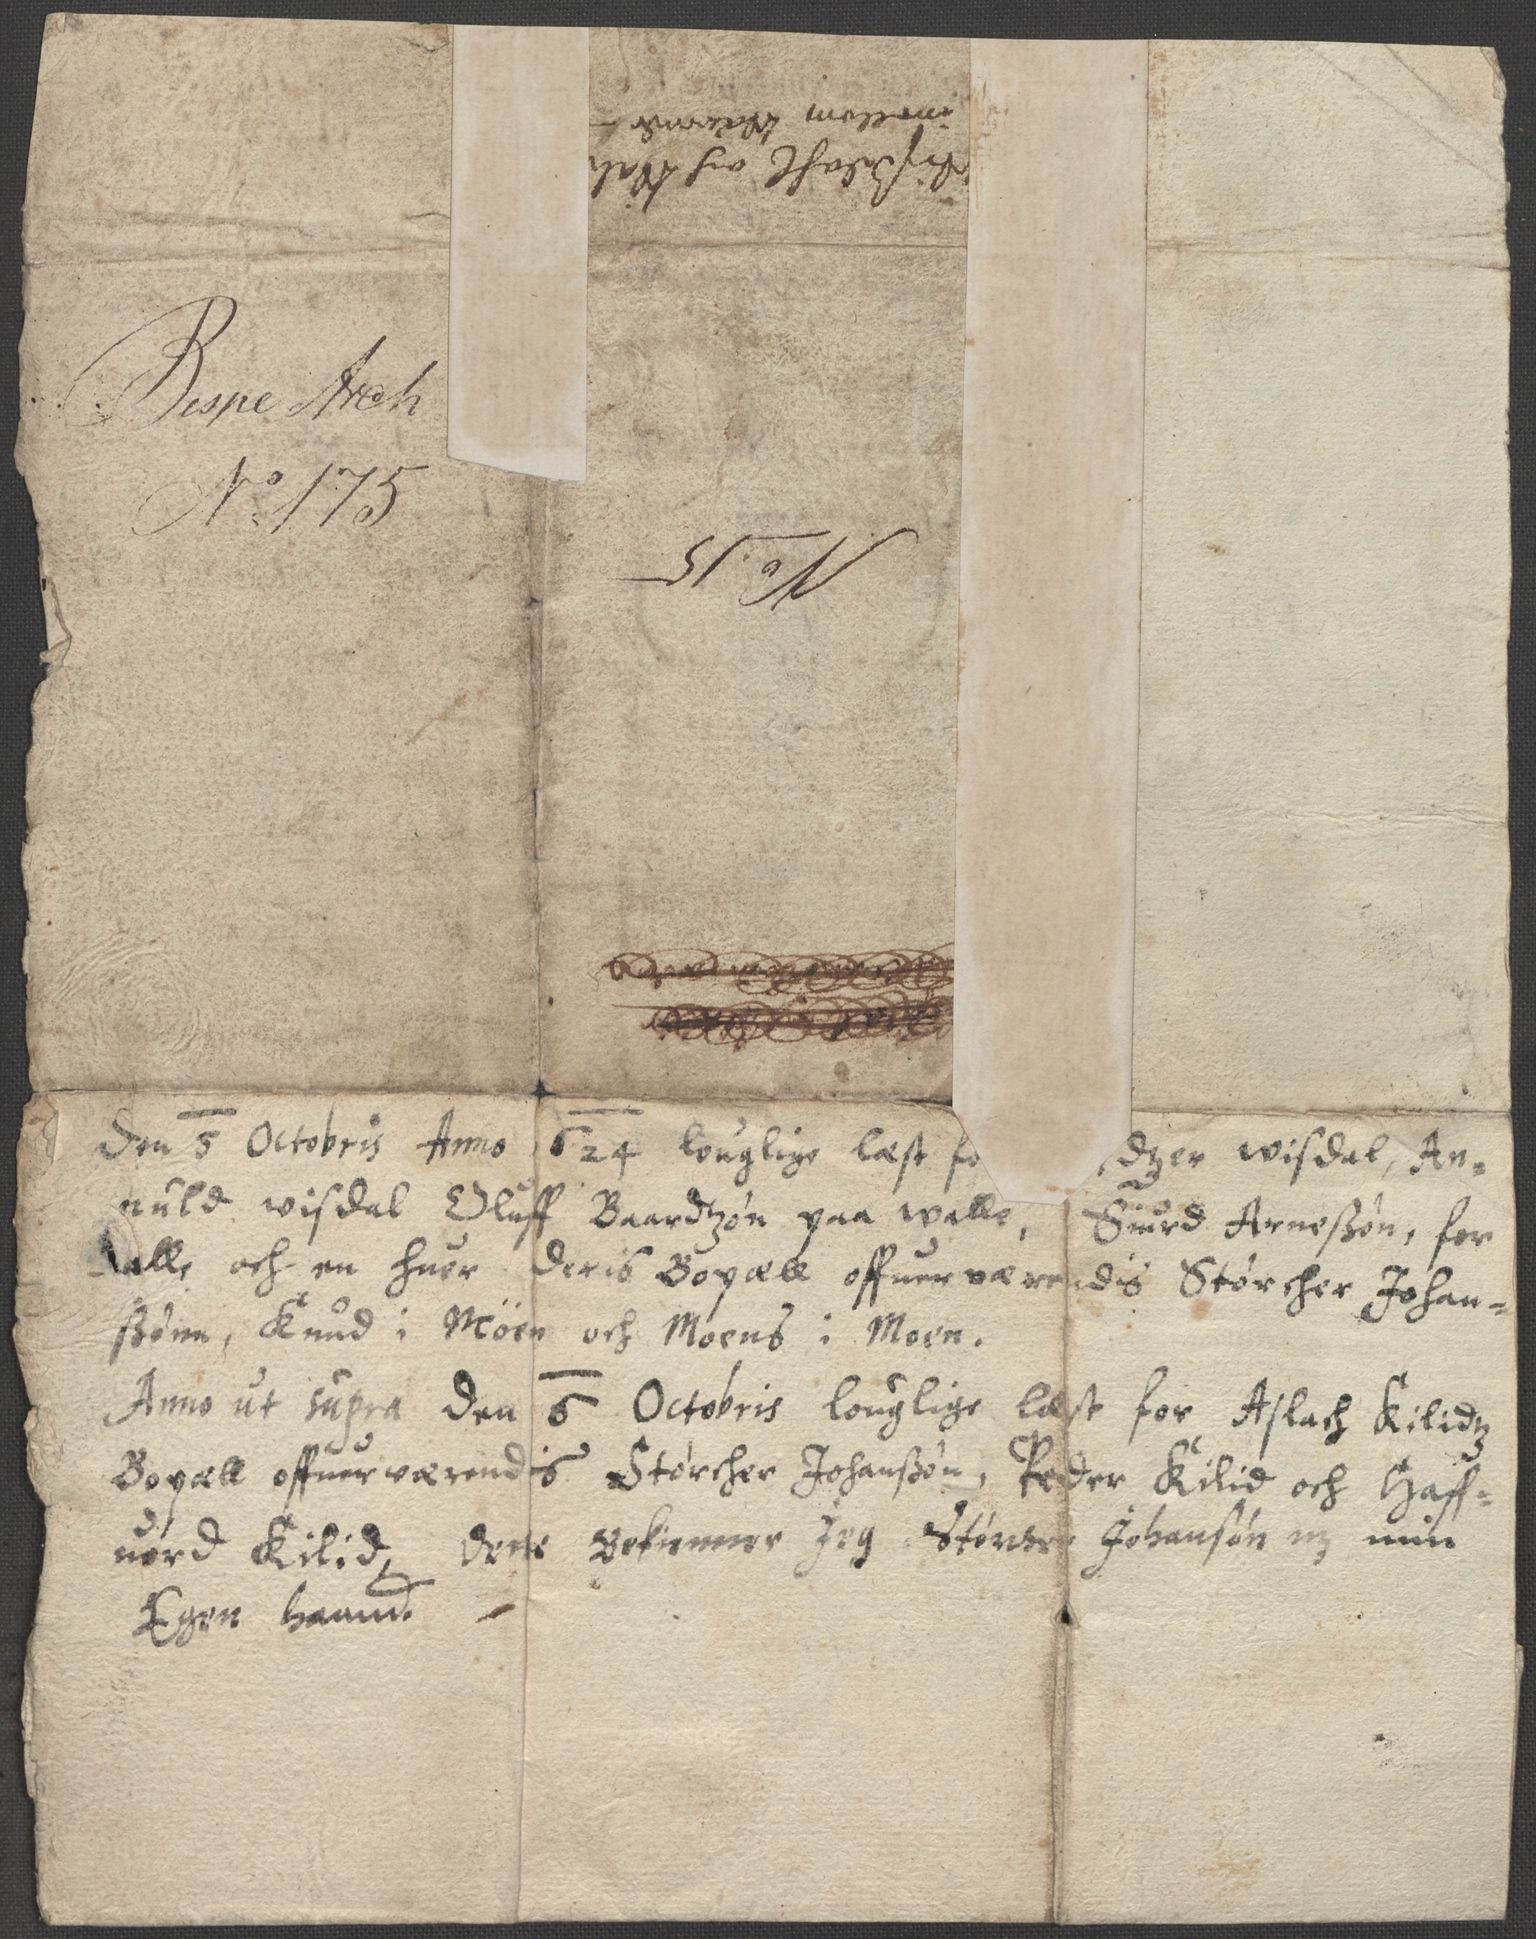 imellom
Bispe Arch
No 175
No. 15
Den 5 Octobris Anno 624 louglige læst fo dtzer wisdal, An=
nuld wisdal Oluff Baardtzøn paa walle, Siurd Arneßøn, for
alle och en huer deris Bopæll offuerværendis Størcher Johan=
ßønn, Knud i Möen och Moens i Moen.
Anno ut supra den 6 Octobris louglige læst for Aslach Kilidtz
Bopæll offuerværendis Størcher Johanßøn, Peder Kilid och Haff=
uord Kilid, Dette Bekienner Jeg Størcher Johansøn m min
Egen haannd.